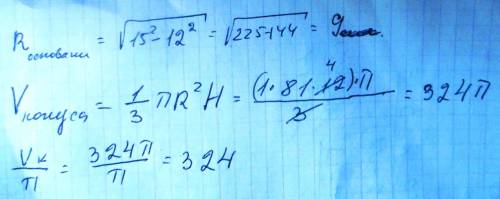 R основани = √15² - 12² = √225-144 = 9
V конуса = 1/3 ПR²H = (1·81·12)·П / 3 = 324П
Vк/П = 324П/П = 324